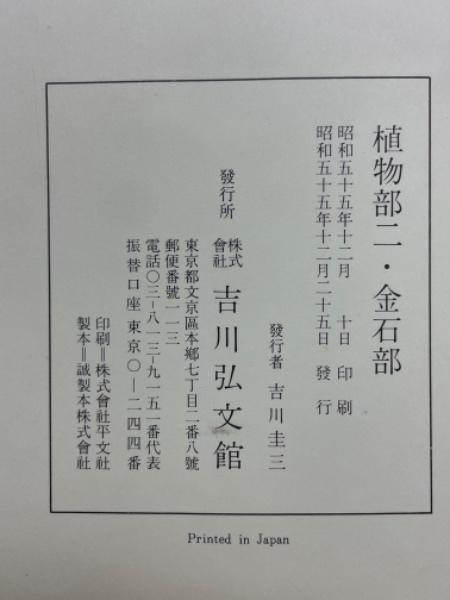 植物部二・金石部
昭和五十五年十二月　十日　印刷
昭和五十五年十二月二十五日　發行
發行者　吉川圭三
發行所　株式會社　吉川弘文館
東京都文京區本郷七丁目二番八號
郵便番號一一三
電話〇三-八一三-九一五一番代表
振替口座東京〇-二四四番
印刷＝株式會社平文社
製本＝誠製本株式會社
Printed in Japan